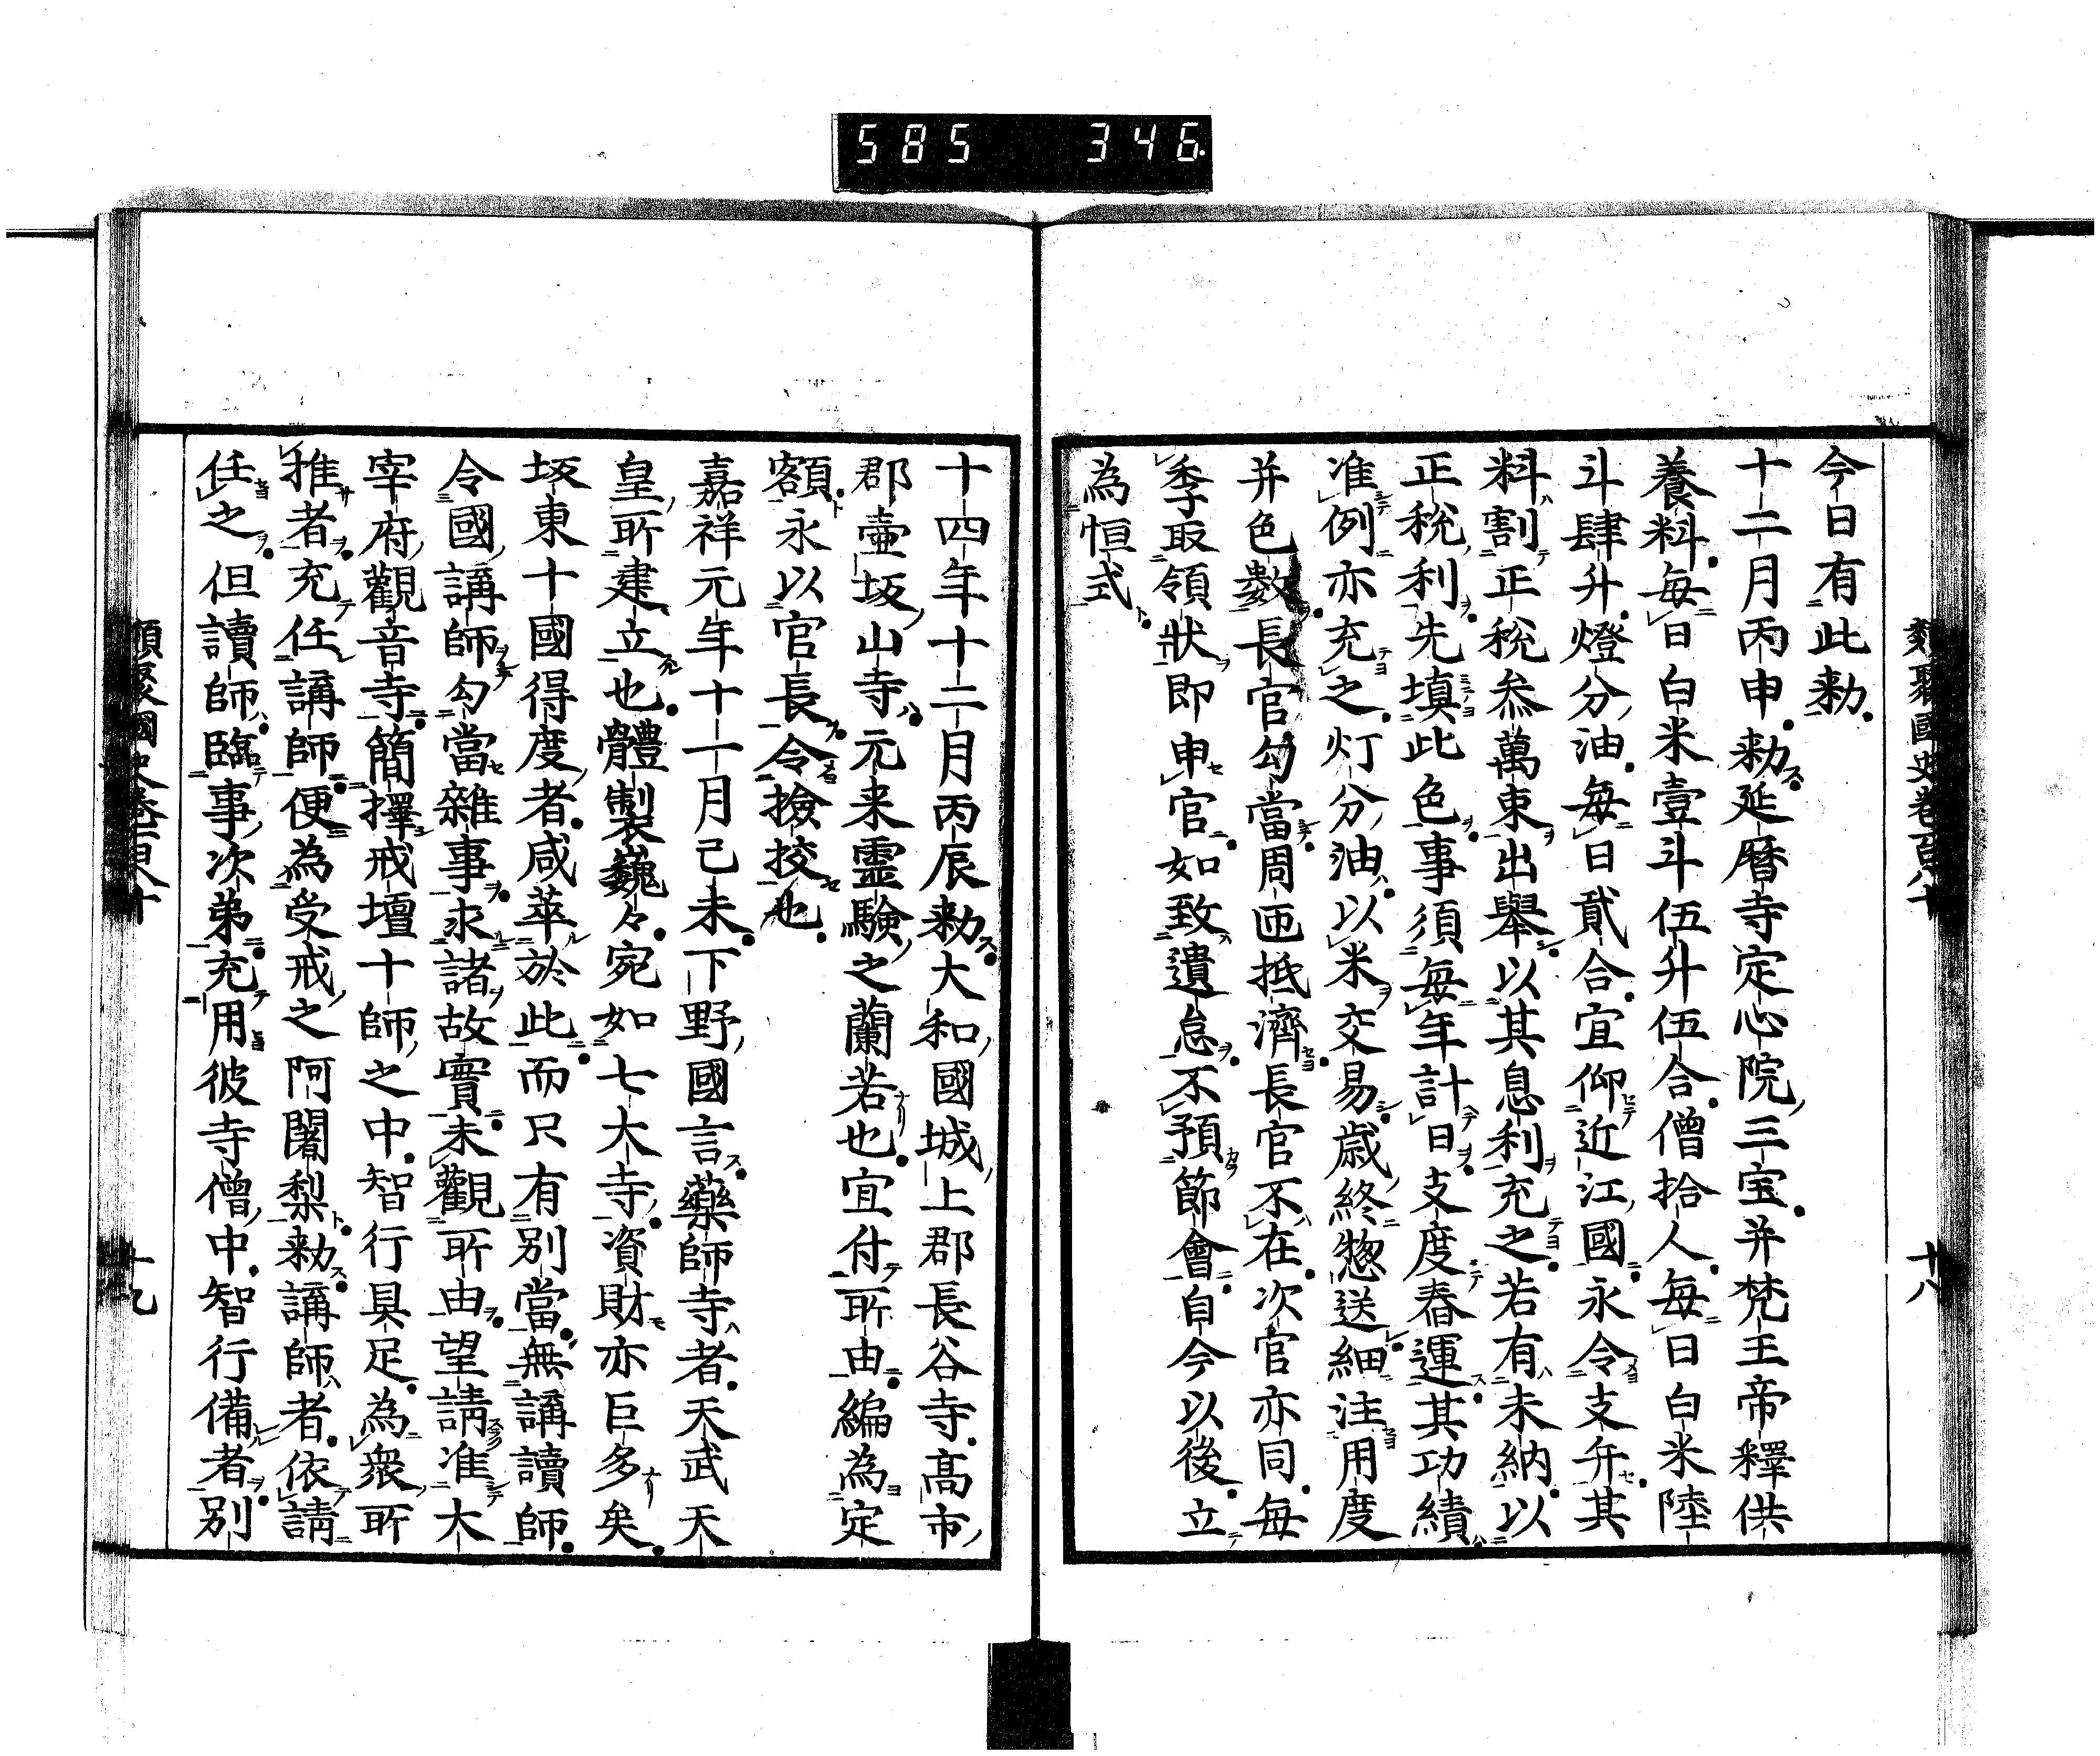 585 346
類聚國史卷百八十
十八
今日有此勅
十二月丙申勅延曆寺定心院三宝并梵王帝釋供
養料每日白米壹斗伍升伍合僧拾人每日白米陸
斗肆升燈分油每日貳合宜仰近江國永令支弁其
料割正税叅萬束出舉以其息利充之若有未納以
正税利先填此色事須每年計日支度舂運其功績
准例亦充之灯分油以米交易歳終惣送細注用度
并色數長官勾當周匝抵濟長官不在次官亦同每
季取領狀即申官如致遺怠不預節會自今以後立
為恒式
十四年十二月丙辰勅大和國城上郡長谷寺髙市
郡壷坂山寺元来霊驗之蘭若也宜付所由編為定
額永以官長令撿挍也
嘉祥元年十一月己未下野國言藥師寺者天武天
皇所建立也體製巍々宛如七大寺資財亦巨多矣
坂東十國得度者咸萃於此而只有別當無講讀師
令國講師勾當雜事求諸故實未觀所由望請准大
宰府觀音寺簡擇戒壇十師之中智行具足為衆所
推者充任講師便為受戒之阿闍梨勅講師者依請
任之但讀師臨事次第充用彼寺僧中智行備者別
類聚國史卷百八十
十九